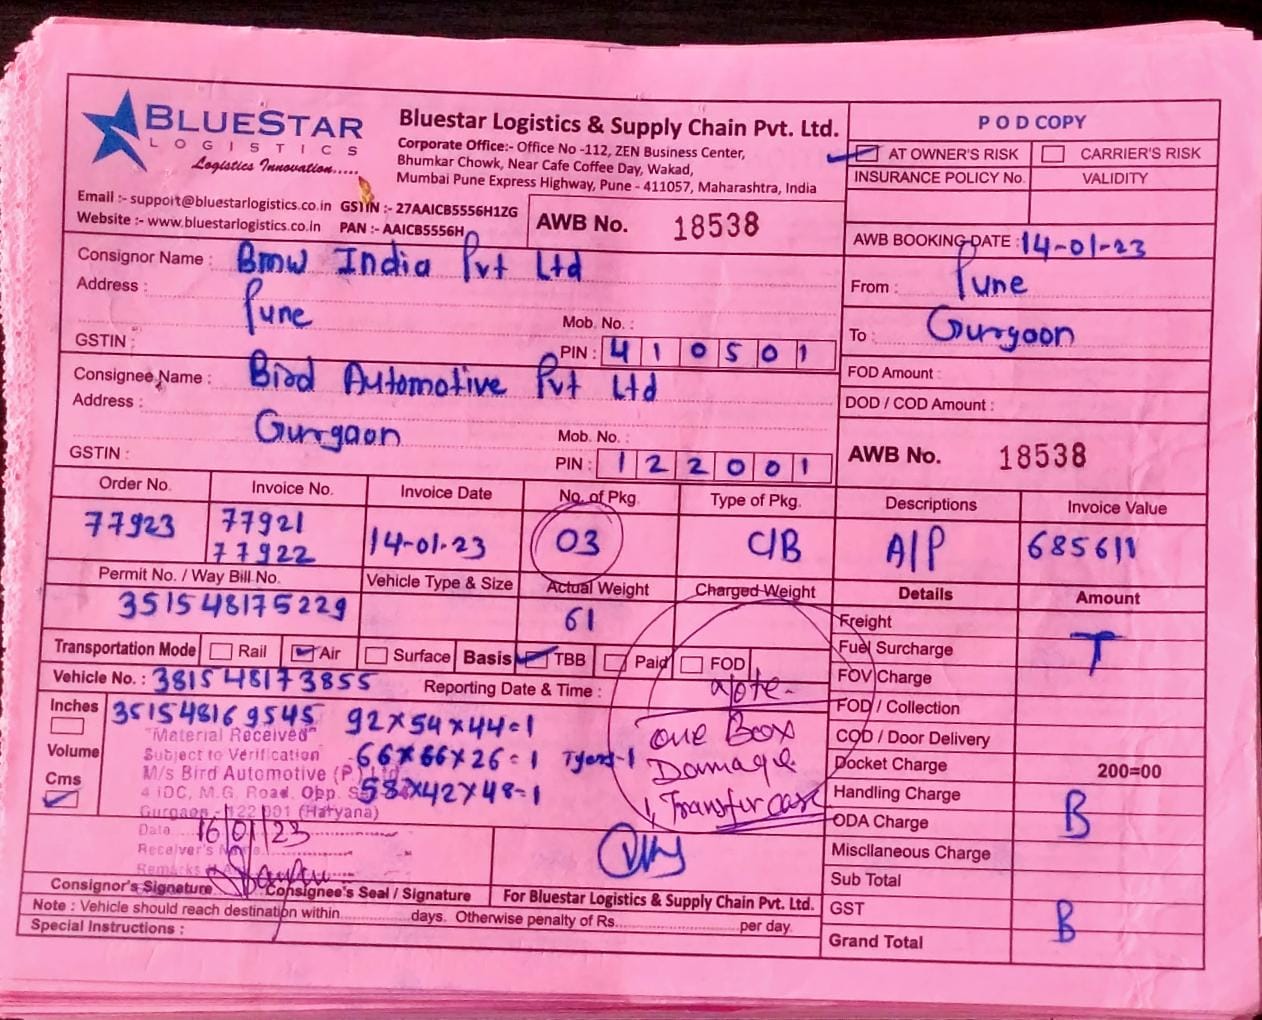 BLUESTAR
LOGISTICS
Logistics Innovation.....
Email :- support@bluestarlogistics.co.in GSTIN :- 27AAICB5556H1ZG
Website :- www.bluestarlogistics.co.in PAN :- AAICB5556H
Bluestar Logistics & Supply Chain Pvt. Ltd.
Corporate Office:- Office No -112, ZEN Business Center,
Bhumkar Chowk, Near Cafe Coffee Day, Wakad,
Mumbai Pune Express Highway, Pune - 411057, Maharashtra, India
AWB No. 18538
POD COPY
AT OWNER'S RISK CARRIER'S RISK
INSURANCE POLICY No. VALIDITY
AWB BOOKING DATE : 14-01-23
From : Pune
To : Gurgaon
FOD Amount :
DOD / COD Amount :
AWB No. 18538
Consignor Name : Bmw India Pvt Ltd
Address : Pune
Mob. No. :
GSTIN : PIN : 410501
Consignee Name : Bird Automotive Pvt Ltd
Address : Gurgaon
Mob. No. :
GSTIN : PIN : 122001
Order No. Invoice No. Invoice Date No. of Pkg. Type of Pkg. Descriptions Invoice Value
77923 77921 14-01-23 03 C/B A/P 685611
77922
Permit No. / Way Bill No. Vehicle Type & Size Actual Weight Charged Weight
351548175229 61
Transportation Mode Rail Air Surface Basis TBB Paid FOD
Vehicle No. : 381548173855 Reporting Date & Time :
Inches
Volume
Cms
351548169545 92X54X44=1
66X66X26=1
58X42X48=1
"Material Received"
Subject to Verification
M/s Bird Automotive (P.) Ltd.
4 IDC, M.G. Road, Opp.
Gurgaon - 122 001 (Haryana)
Date 16/01/23
Receiver's Name
Remarks
Note-
One Box
Damage
1, Transfer case
Consignor's Signature Consignee's Seal / Signature For Bluestar Logistics & Supply Chain Pvt. Ltd.
Note : Vehicle should reach destination within..........days. Otherwise penalty of Rs..........per day.
Special Instructions :
Details Amount
Freight
Fuel Surcharge T
FOV Charge
FOD / Collection
COD / Door Delivery
Docket Charge 200=00
Handling Charge
ODA Charge B
Miscllaneous Charge
Sub Total
GST B
Grand Total